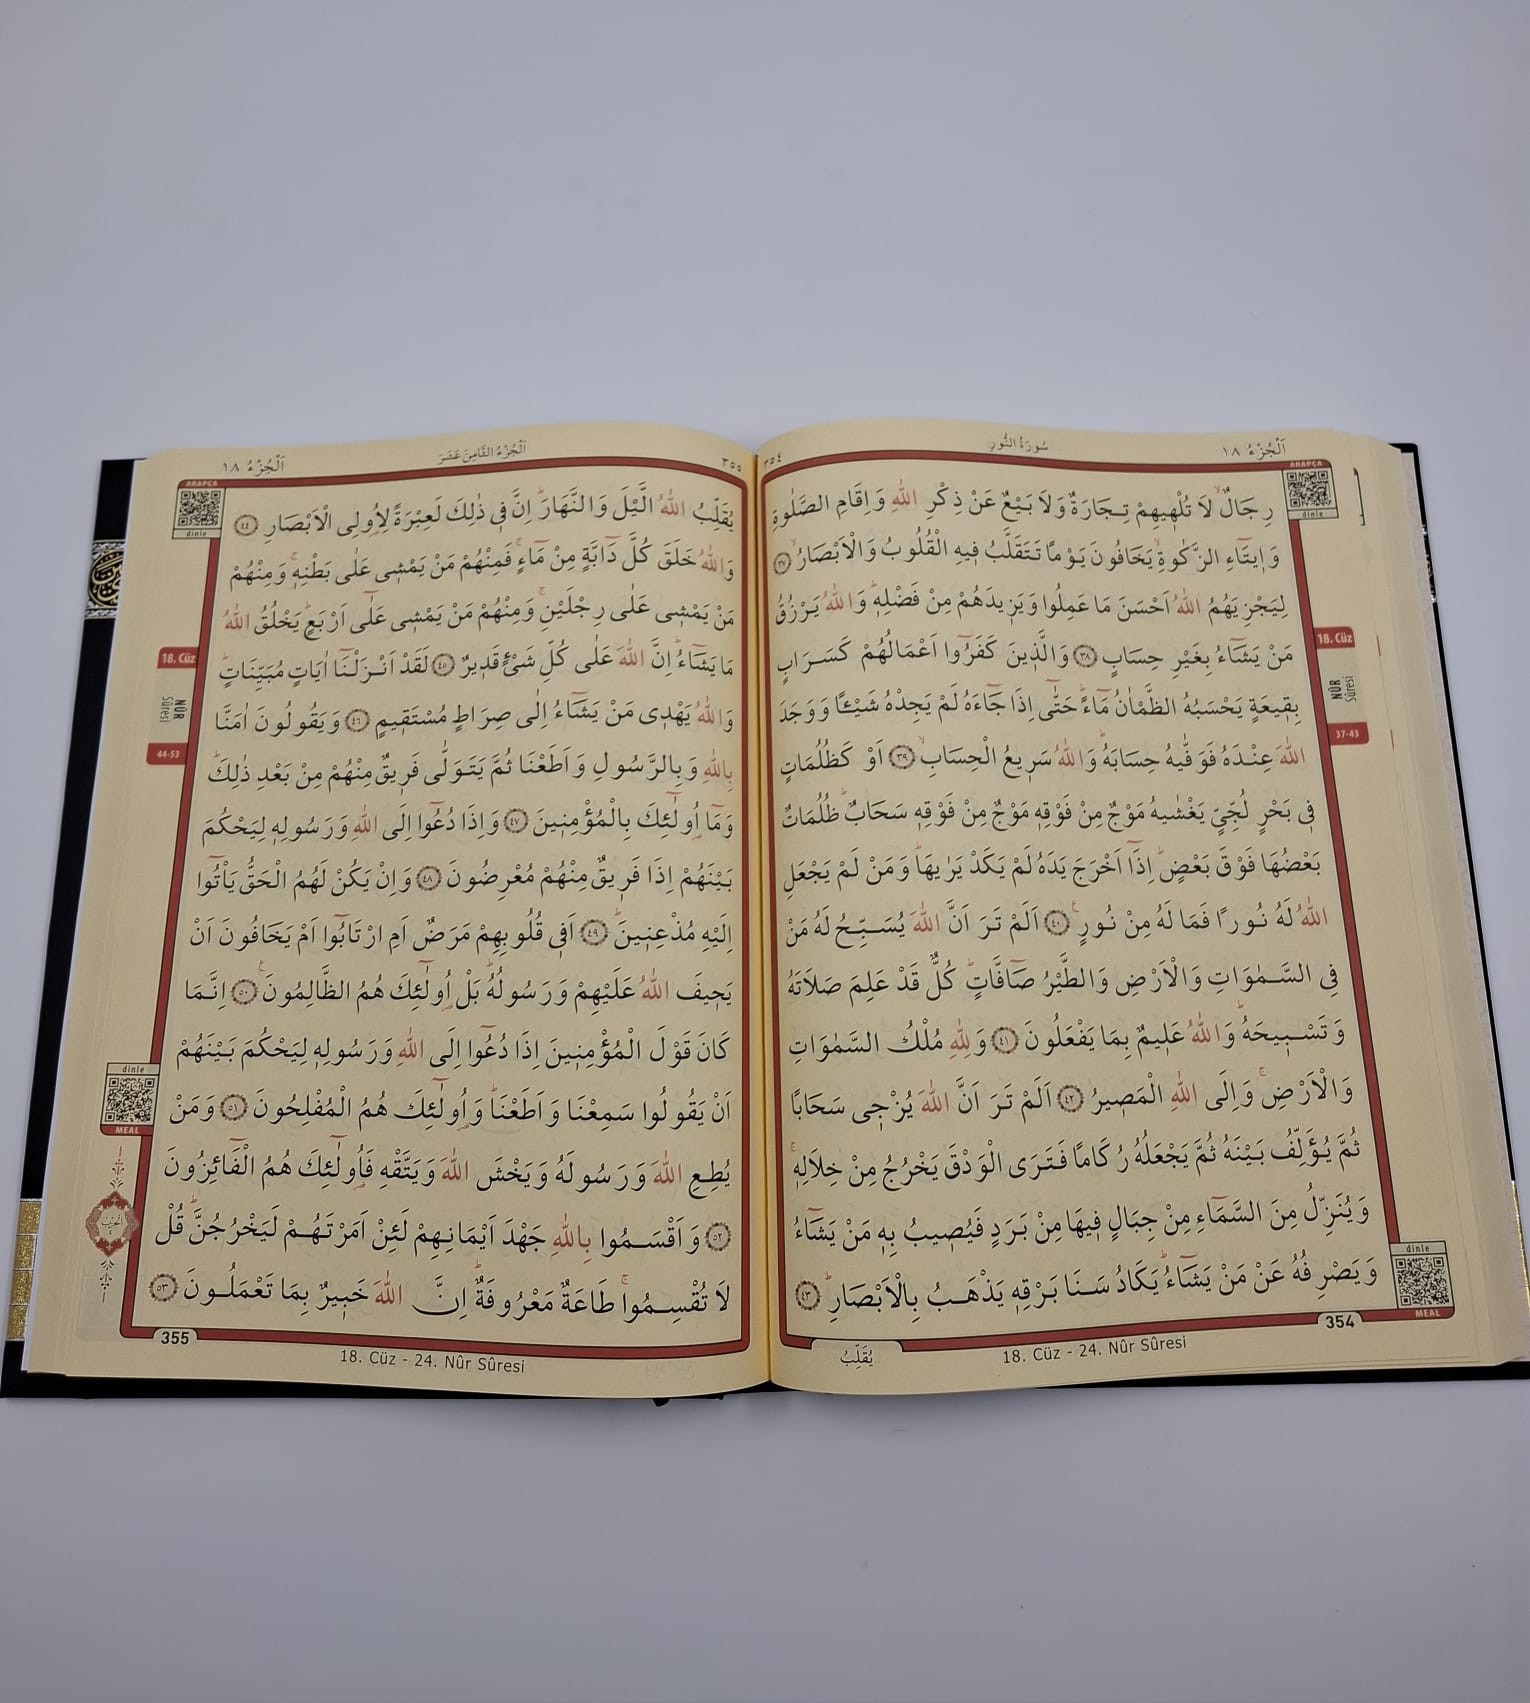 اَلْجُزْءُ ١٨
سُورَةُ النُّورِ
٣٥٤
ARAPÇA
dinle
رِجَالٌۙ لَا تُلْهٖيهِمْ تِجَارَةٌ وَلَا بَيْعٌ عَنْ ذِكْرِ اللّٰهِ وَاِقَامِ الصَّلٰوةِ
وَاٖيتَٓاءِ الزَّكٰوةِۙ يَخَافُونَ يَوْمًا تَتَقَلَّبُ فٖيهِ الْقُلُوبُ وَالْاَبْصَارُۙ ﴿٣٧﴾
لِيَجْزِيَهُمُ اللّٰهُ اَحْسَنَ مَا عَمِلُوا وَيَزٖيدَهُمْ مِنْ فَضْلِهٖؕ وَاللّٰهُ يَرْزُقُ
مَنْ يَشَٓاءُ بِغَيْرِ حِسَابٍ ﴿٣٨﴾ وَالَّذٖينَ كَفَرُٓوا اَعْمَالُهُمْ كَسَرَابٍ
بِقٖيعَةٍ يَحْسَبُهُ الظَّمْاٰنُ مَٓاءًؕ حَتّٰٓى اِذَا جَٓاءَهُ لَمْ يَجِدْهُ شَيْـًٔا وَوَجَدَ
اللّٰهَ عِنْدَهُ فَوَفّٰيهُ حِسَابَهُؕ وَاللّٰهُ سَرٖيعُ الْحِسَابِۙ ﴿٣٩﴾ اَوْ كَظُلُمَاتٍ
فٖى بَحْرٍ لُجِّىٍّ يَغْشٰيهُ مَوْجٌ مِنْ فَوْقِهٖ مَوْجٌ مِنْ فَوْقِهٖ سَحَابٌؕ ظُلُمَاتٌ
بَعْضُهَا فَوْقَ بَعْضٍؕ اِذَٓا اَخْرَجَ يَدَهُ لَمْ يَكَدْ يَرٰيهَاؕ وَمَنْ لَمْ يَجْعَلِ
اللّٰهُ لَهُ نُورًا فَمَا لَهُ مِنْ نُورٍࣖ ﴿٤٠﴾ اَلَمْ تَرَ اَنَّ اللّٰهَ يُسَبِّحُ لَهُ مَنْ
فِى السَّمٰوَاتِ وَالْاَرْضِ وَالطَّيْرُ صَٓافَّاتٍؕ كُلٌّ قَدْ عَلِمَ صَلَاتَهُ
وَتَسْبٖيحَهُؕ وَاللّٰهُ عَلٖيمٌ بِمَا يَفْعَلُونَ ﴿٤١﴾ وَلِلّٰهِ مُلْكُ السَّمٰوَاتِ
وَالْاَرْضِۚ وَاِلَى اللّٰهِ الْمَصٖيرُ ﴿٤٢﴾ اَلَمْ تَرَ اَنَّ اللّٰهَ يُزْجٖى سَحَابًا
ثُمَّ يُؤَلِّفُ بَيْنَهُ ثُمَّ يَجْعَلُهُ رُكَامًا فَتَرَى الْوَدْقَ يَخْرُجُ مِنْ خِلَالِهٖۚ
وَيُنَزِّلُ مِنَ السَّمَٓاءِ مِنْ جِبَالٍ فٖيهَا مِنْ بَرَدٍ فَيُصٖيبُ بِهٖ مَنْ يَشَٓاءُ
وَيَصْرِفُهُ عَنْ مَنْ يَشَٓاءُؕ يَكَادُ سَنَا بَرْقِهٖ يَذْهَبُ بِالْاَبْصَارِؕ ﴿٤٣﴾
18. Cüz
NÛR
Sûresi
37-43
dinle
MEAL
354
18. Cüz - 24. Nûr Sûresi
يُقَلِّبُ
٣٥٥
اَلْجُزْءُ الثَّامِنَ عَشَرَ
اَلْجُزْءُ ١٨
ARAPÇA
dinle
يُقَلِّبُ اللّٰهُ الَّيْلَ وَالنَّهَارَؕ اِنَّ فٖى ذٰلِكَ لَعِبْرَةً لِاُولِى الْاَبْصَارِ ﴿٤٤﴾
وَاللّٰهُ خَلَقَ كُلَّ دَٓابَّةٍ مِنْ مَٓاءٍۚ فَمِنْهُمْ مَنْ يَمْشٖى عَلٰى بَطْنِهٖۚ وَمِنْهُمْ
مَنْ يَمْشٖى عَلٰى رِجْلَيْنِۚ وَمِنْهُمْ مَنْ يَمْشٖى عَلٰٓى اَرْبَعٍؕ يَخْلُقُ اللّٰهُ
مَا يَشَٓاءُؕ اِنَّ اللّٰهَ عَلٰى كُلِّ شَىْءٍ قَدٖيرٌ ﴿٤٥﴾ لَقَدْ اَنْزَلْنَٓا اٰيَاتٍ مُبَيِّنَاتٍؕ
وَاللّٰهُ يَهْدٖى مَنْ يَشَٓاءُ اِلٰى صِرَاطٍ مُسْتَقٖيمٍ ﴿٤٦﴾ وَيَقُولُونَ اٰمَنَّا
بِاللّٰهِ وَبِالرَّسُولِ وَاَطَعْنَا ثُمَّ يَتَوَلّٰى فَرٖيقٌ مِنْهُمْ مِنْ بَعْدِ ذٰلِكَؕ
وَمَٓا اُولٰٓئِكَ بِالْمُؤْمِنٖينَ ﴿٤٧﴾ وَاِذَا دُعُٓوا اِلَى اللّٰهِ وَرَسُولِهٖ لِيَحْكُمَ
بَيْنَهُمْ اِذَا فَرٖيقٌ مِنْهُمْ مُعْرِضُونَ ﴿٤٨﴾ وَاِنْ يَكُنْ لَهُمُ الْحَقُّ يَاْتُٓوا
اِلَيْهِ مُذْعِنٖينَؕ ﴿٤٩﴾ اَفٖى قُلُوبِهِمْ مَرَضٌ اَمِ ارْتَابُٓوا اَمْ يَخَافُونَ اَنْ
يَحٖيفَ اللّٰهُ عَلَيْهِمْ وَرَسُولُهُؕ بَلْ اُولٰٓئِكَ هُمُ الظَّالِمُونَࣖ ﴿٥٠﴾ اِنَّمَا
كَانَ قَوْلَ الْمُؤْمِنٖينَ اِذَا دُعُٓوا اِلَى اللّٰهِ وَرَسُولِهٖ لِيَحْكُمَ بَيْنَهُمْ
اَنْ يَقُولُوا سَمِعْنَا وَاَطَعْنَاؕ وَاُولٰٓئِكَ هُمُ الْمُفْلِحُونَ ﴿٥١﴾ وَمَنْ
يُطِعِ اللّٰهَ وَرَسُولَهُ وَيَخْشَ اللّٰهَ وَيَتَّقْهِ فَاُولٰٓئِكَ هُمُ الْفَٓائِزُونَ
﴿٥٢﴾ وَاَقْسَمُوا بِاللّٰهِ جَهْدَ اَيْمَانِهِمْ لَئِنْ اَمَرْتَهُمْ لَيَخْرُجُنَّؕ قُلْ
لَا تُقْسِمُواۚ طَاعَةٌ مَعْرُوفَةٌؕ اِنَّ اللّٰهَ خَبٖيرٌ بِمَا تَعْمَلُونَ ﴿٥٣﴾
18. Cüz
NÛR
Sûresi
44-53
dinle
MEAL
355
18. Cüz - 24. Nûr Sûresi